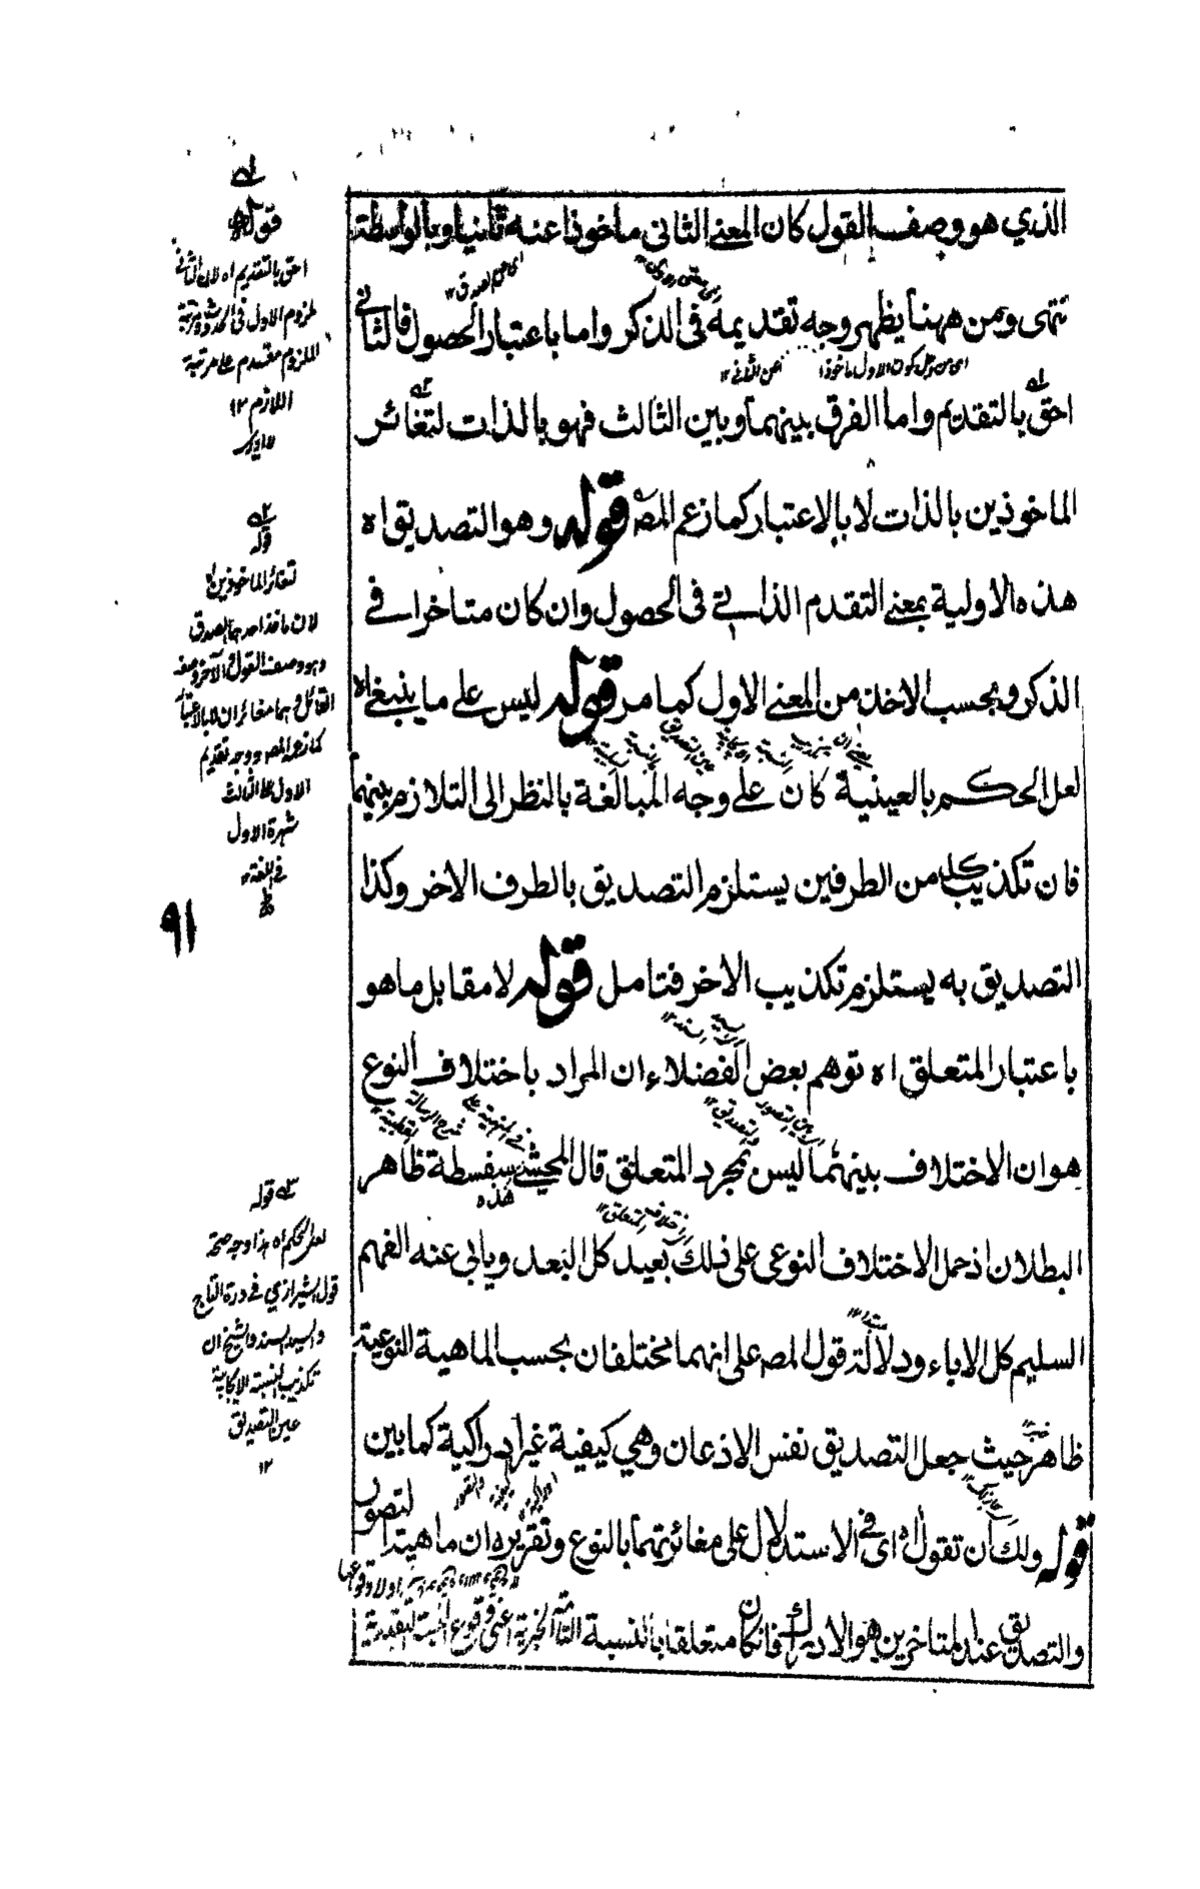 الذي هو وصف القول كان المعنى الثانى ماخوذا عنه ثانيا وبالواسطة
انتهى ومن ههنا يظهر وجه تقديمه فى الذكر واما باعتبار الحصول فالثانى
احق بالتقديم واما الفرق بينهما وبين الثالث فهو بالذات لتغائر
الماخوذين بالذات لا بالاعتبار كما زعم المصـ قوله وهو التصديق اه
هذه الاولية بمعنى التقدم الذاتى فى الحصول وان كان متاخرا فى
الذكر وبحسب الاخذ من المعنى الاول كما مر قوله ليس على ما ينبغى اه
لعل الحكم بالعينية كان على وجه المبالغة بالنظر الى التلازم بينهما
فان تكذيب كل من الطرفين يستلزم التصديق بالطرف الاخر وكذا
التصديق به يستلزم تكذيب الاخر فتامل قوله لا مقابل ما هو
باعتبار المتعلق اه توهم بعض الفضلاء ان المراد باختلاف النوع
هو ان الاختلاف بينهما ليس بمجرد المتعلق قال المحشى هذه سفسطة ظاهر
البطلان اذ حمل الاختلاف النوعى على ذلك بعيد كل البعد ويابى عنه الفهم
السليم كل الاباء ودلالة قول المصـ على انهما مختلفان بحسب الماهية النوعية
ظاهر حيث جعل التصديق نفس الاذعان وهي كيفية غير ادراكية كما بين
قوله ولك ان تقول اه اى فى الاستدلال على مغائرتهما بالنوع وتقريره ان ماهية التصور
والتصديق عند المتاخرين هو الادراك فان كان متعلقا بالنسبة التامة الخبرية اعنى وقوع النسبة التقييدية
اى عن الصدق ١٢
عن الثانى ١٢
اولا وقوعها
قوله
احق بالتقديم اه لان الثانى
ملزوم الاول فى الحدوث ومرتبة
الملزوم مقدم على مرتبة
اللازم ١٢
قوله
تغائر الماخوذين اه
لان ماخذ احدهما الصدق
وهو وصف القول والآخر وصف
القائل وهما متغائران لا بالاعتبار
كما زعم المصـ ووجه تقديم
الاول على الثالث
شهرة الاول
فى اللغة ١٢
٩١
قوله
لعل الحكم اه هذا وجه صحة
قول الشيرازي فى درة التاج
والسيد السند والشيخ ان
تكذيب النسبة الايجابية
عين التصديق
١٢